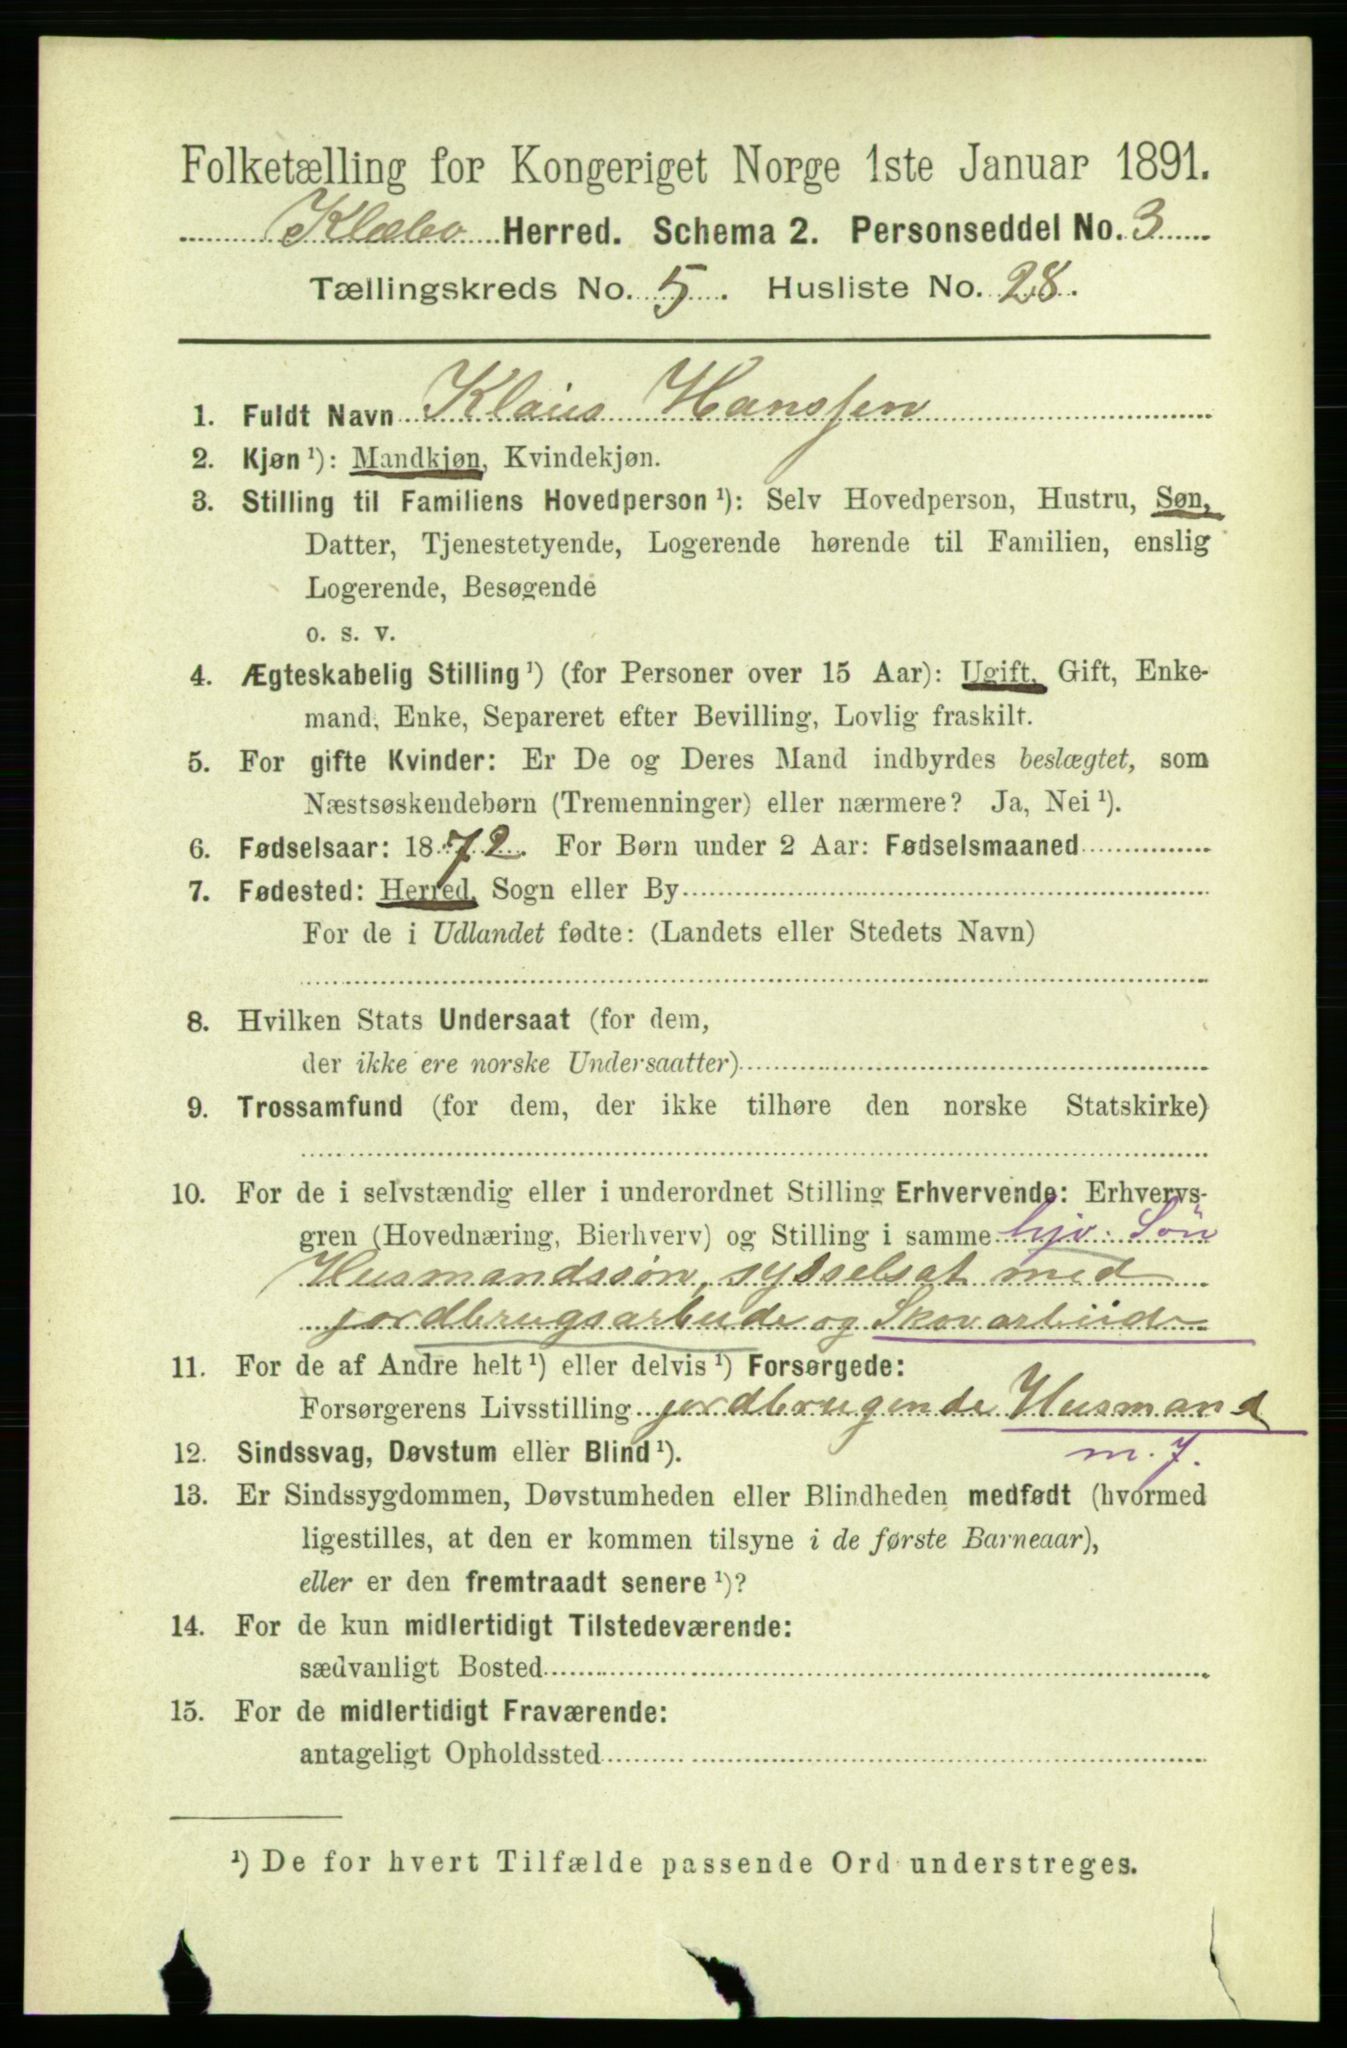 Folketælling for Kongeriget Norge 1ste Januar 1891.
Klæbo Herred. Schema 2. Personseddel No. 3
Tællingskreds No. 5. Husliste No. 28.
1. Fuldt Navn Klaus Hanssen
2. Kjøn ¹): Mandkjøn, Kvindekjøn.
3. Stilling til Familiens Hovedperson ¹): Selv Hovedperson, Hustru, Søn,
Datter, Tjenestetyende, Logerende hørende til Familien, enslig
Logerende, Besøgende
o. s. v.
4. Ægteskabelig Stilling ¹) (for Personer over 15 Aar): Ugift, Gift, Enke-
mand, Enke, Separeret efter Bevilling, Lovlig fraskilt.
5. For gifte Kvinder: Er De og Deres Mand indbyrdes beslægtet, som
Næstsøskendebørn (Tremenninger) eller nærmere? Ja, Nei ¹).
6. Fødselsaar: 1872. For Børn under 2 Aar: Fødselsmaaned
7. Fødested: Herred, Sogn eller By
For de i Udlandet fødte: (Landets eller Stedets Navn)
8. Hvilken Stats Undersaat (for dem,
der ikke ere norske Undersaatter)
9. Trossamfund (for dem, der ikke tilhøre den norske Statskirke)
10. For de i selvstændig eller i underordnet Stilling Erhvervende: Erhvervs-
gren (Hovednæring, Bierhverv) og Stilling i samme hjv. Søn
Husmandssøn, sysselsat med
jordbrugsarbeide og Skovarbeide
11. For de af Andre helt ¹) eller delvis ¹) Forsørgede:
Forsørgerens Livsstilling jordbrugende Husmand
12. Sindssvag, Døvstum eller Blind ¹). m. J.
13. Er Sindssygdommen, Døvstumheden eller Blindheden medfødt (hvormed
ligestilles, at den er kommen tilsyne i de første Barneaar),
eller er den fremtraadt senere ¹)?
14. For de kun midlertidigt Tilstedeværende:
sædvanligt Bosted
15. For de midlertidigt Fraværende:
antageligt Opholdssted
¹) De for hvert Tilfælde passende Ord understreges.